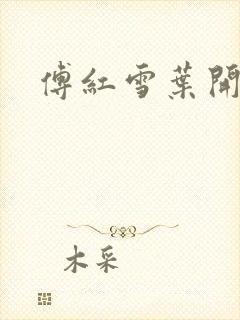 傅紅雪葉開
木采